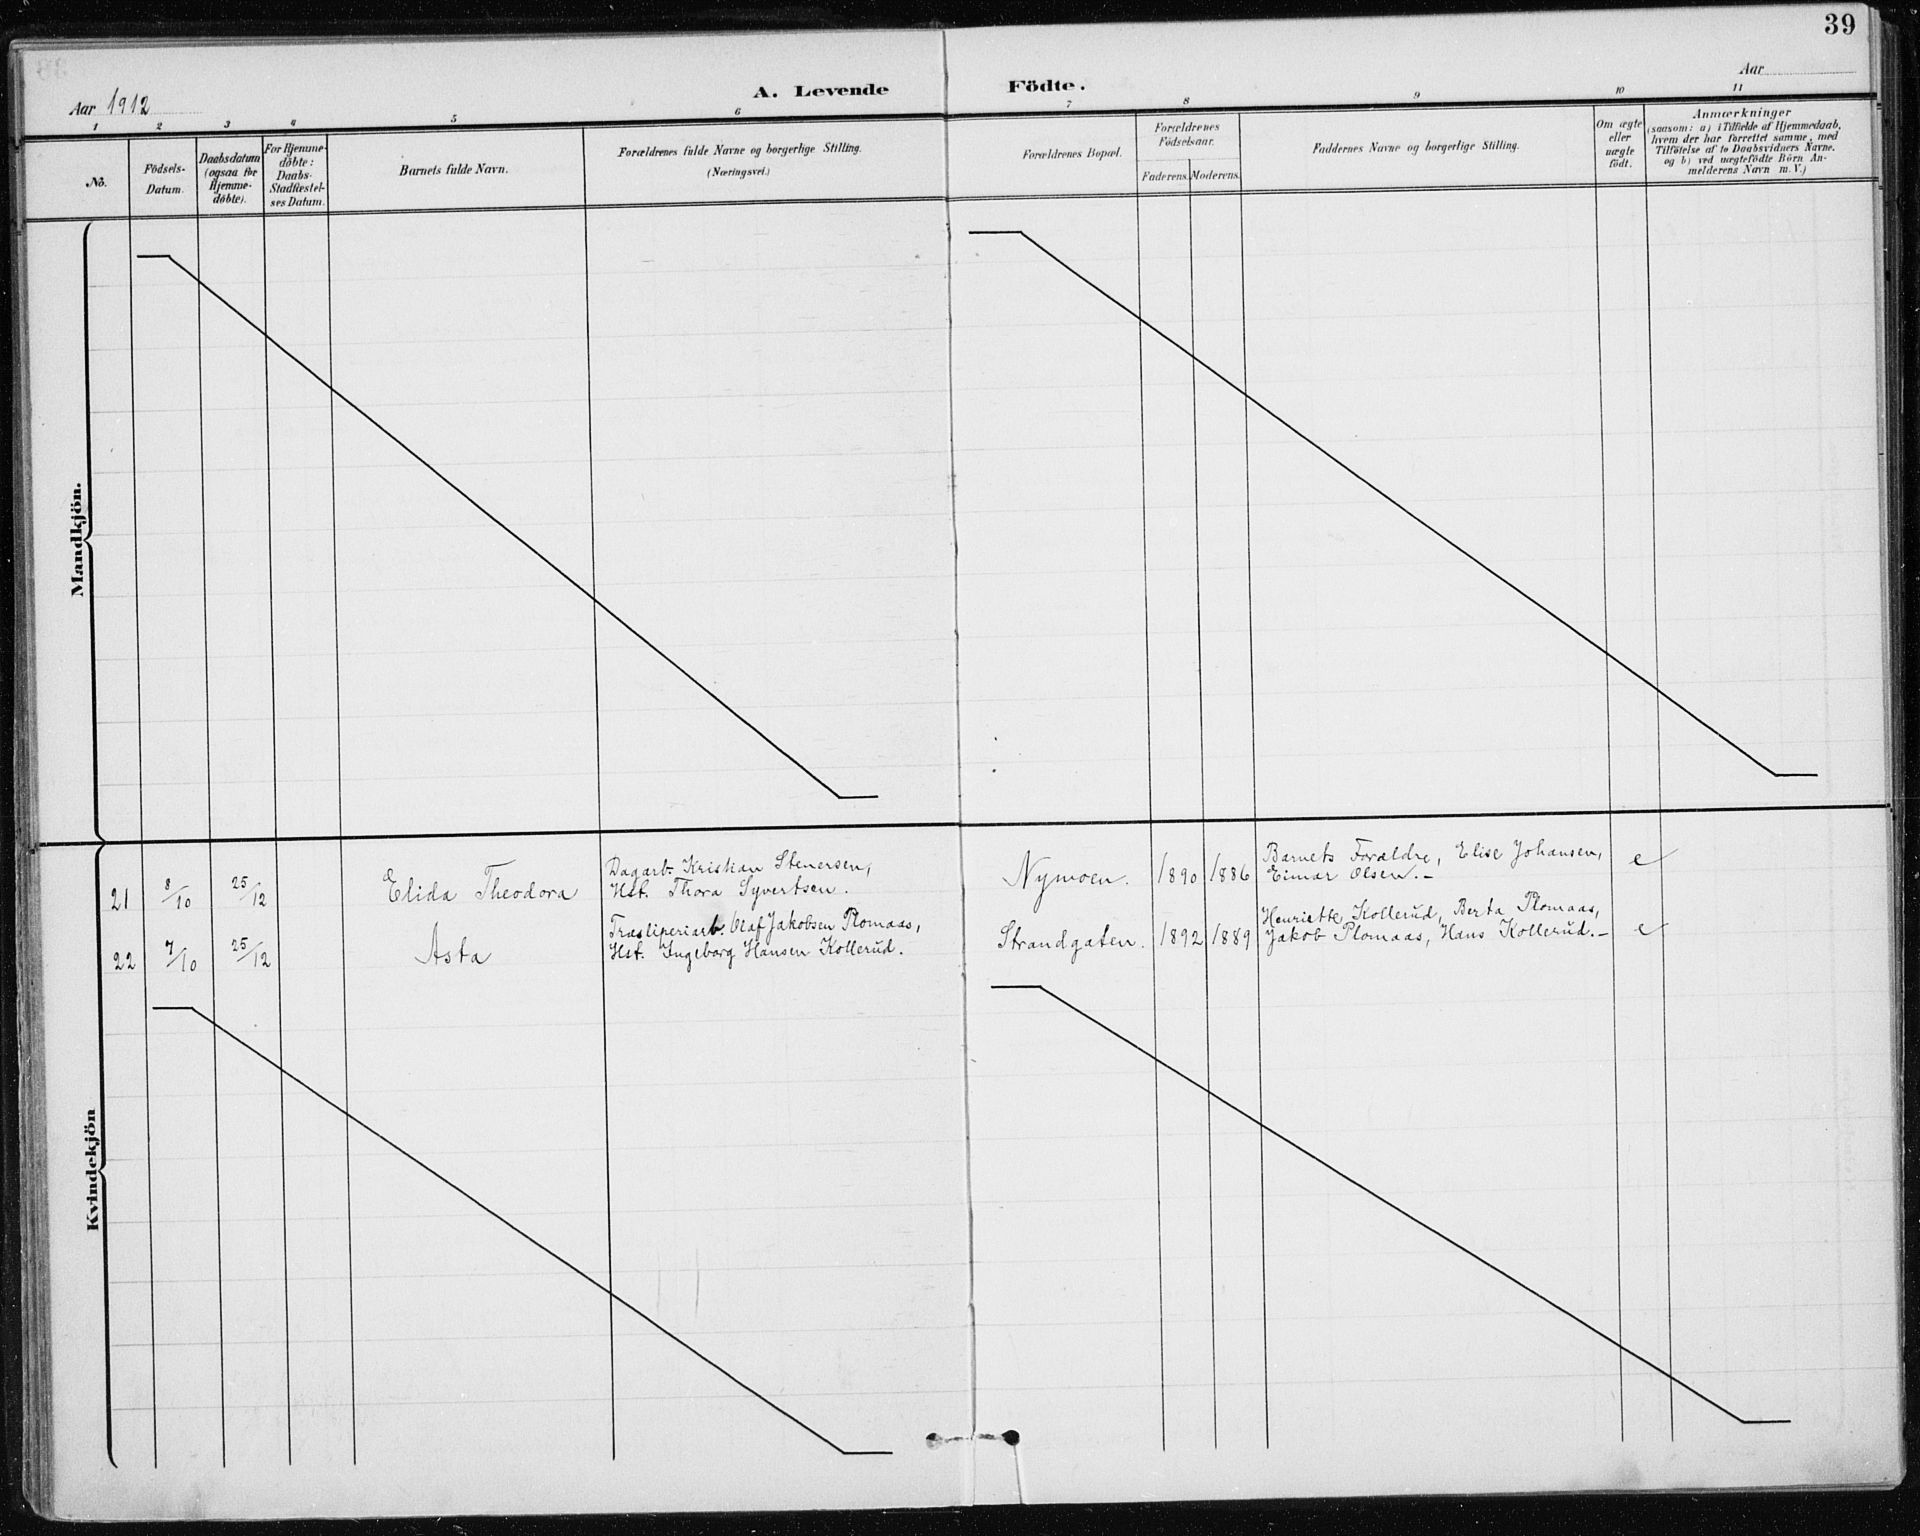 39
Aar 1912
A. Levende Födte.
Aar
1 2 3 4 5 6 7 8 9 10 11
No.
Födsels-
Datum.
Daabsdatum
(ogsaa for
Hjemme-
döbte).
For Hjemme-
döbte:
Daabs-
Stadfæstel-
ses Datum.
Barnets fulde Navn.
Forældrenes fulde Navne og borgerlige Stilling.
(Næringsvei.)
Forældrenes Bopæl.
Forældrenes
Födselsaar.
Faderens. Moderens.
Faddernes Navne og borgerlige Stilling.
Om ægte
eller
uægte
födt.
Anmærkninger
(saasom: a) i Tilfælde af Hjemmedaab,
hvem der har forrettet samme, med
Tilföielse af to Daabsvidners Navne.
og b) ved uægtefödte Börn An-
melderens Navn m. V.)
Mandkjön.
Kvindekjön
21 8/10 25/12 Elida Theodora
Dagarb. Kristian Stenersen,
Hst. Thora Syvertsen.
Nymoen. 1890 1886
Barnets Forældre, Elise Johansen,
Einar Olsen.— e
22 7/10 25/12 Asta
Træsliperiarb. Olaf Jakobsen Plomaas,
Hst. Ingeborg Hansen Kollerud.
Strandgaten. 1892 1889
Henriette Kollerud, Berta Plomaas,
Jakob Plomaas, Hans Kollerud.— e